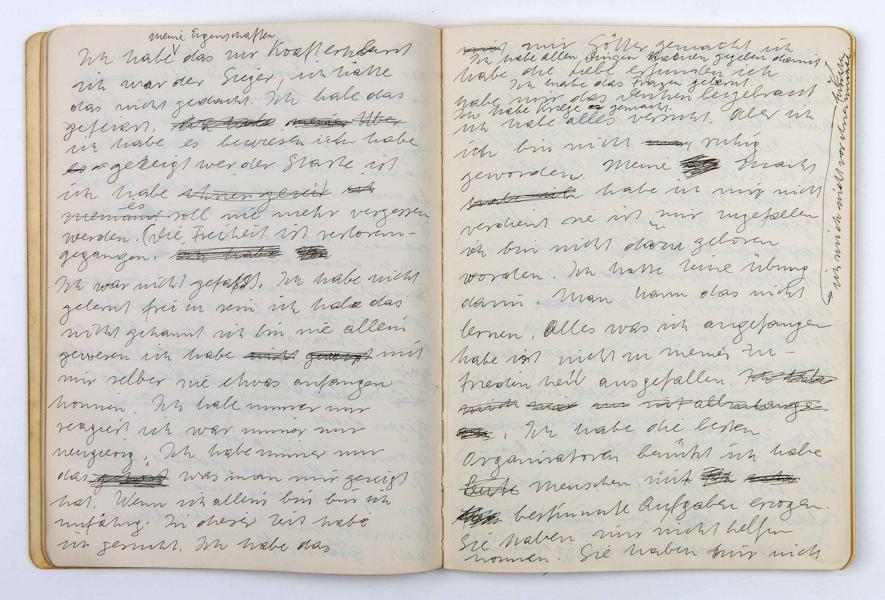 meine Eigenschaften
Ich habe das nur
ich war der Sieger, ich hatte
das nicht gedacht. Ich habe das
gefeiert. Über
ich habe es bewiesen ich habe
gezeigt wer der Starke ist
ich habe
es soll nie mehr vergessen
werden. (Die Freiheit ist verloren-
gegangen.
Ich war nicht gefasst. Ich habe nicht
gelernt frei zu sein ich habe das
nicht gekannt ich bin nie allein
gewesen ich habe mit
mir selber nie etwas anfangen
können. Ich habe immer nur
reagiert ich war immer nur
neugierig. Ich habe immer nur
das was man mir gezeigt
hat. Wenn ich allein bin bin ich
unfähig. In dieser Zeit habe
ich gesucht. Ich habe das
mir Götter gemacht ich
Ich habe allen Dingen Namen gegeben damit
habe die Liebe erfunden ich
Ich habe das Fragen gelernt.
habe mir das beigebracht
Ich habe Kriege gemacht.
ich habe alles versucht. Aber ich
ich bin nicht ruhig
geworden. Meine Macht
habe ich mir nicht
verdient sie ist mir zugefallen
ich bin nicht dazu geboren
worden. Ich hatte keine Übung
darin. Man kann das nicht
lernen. Alles was ich angefangen
habe ist nicht zu meiner Zu-
friedenheit ausgefallen.
Ich habe die besten
Organisatoren benützt ich habe
Menschen mit
bestimmte Aufgaben erzogen.
Sie haben mir nicht helfen
können. Sie haben mir nicht
ich mich nicht